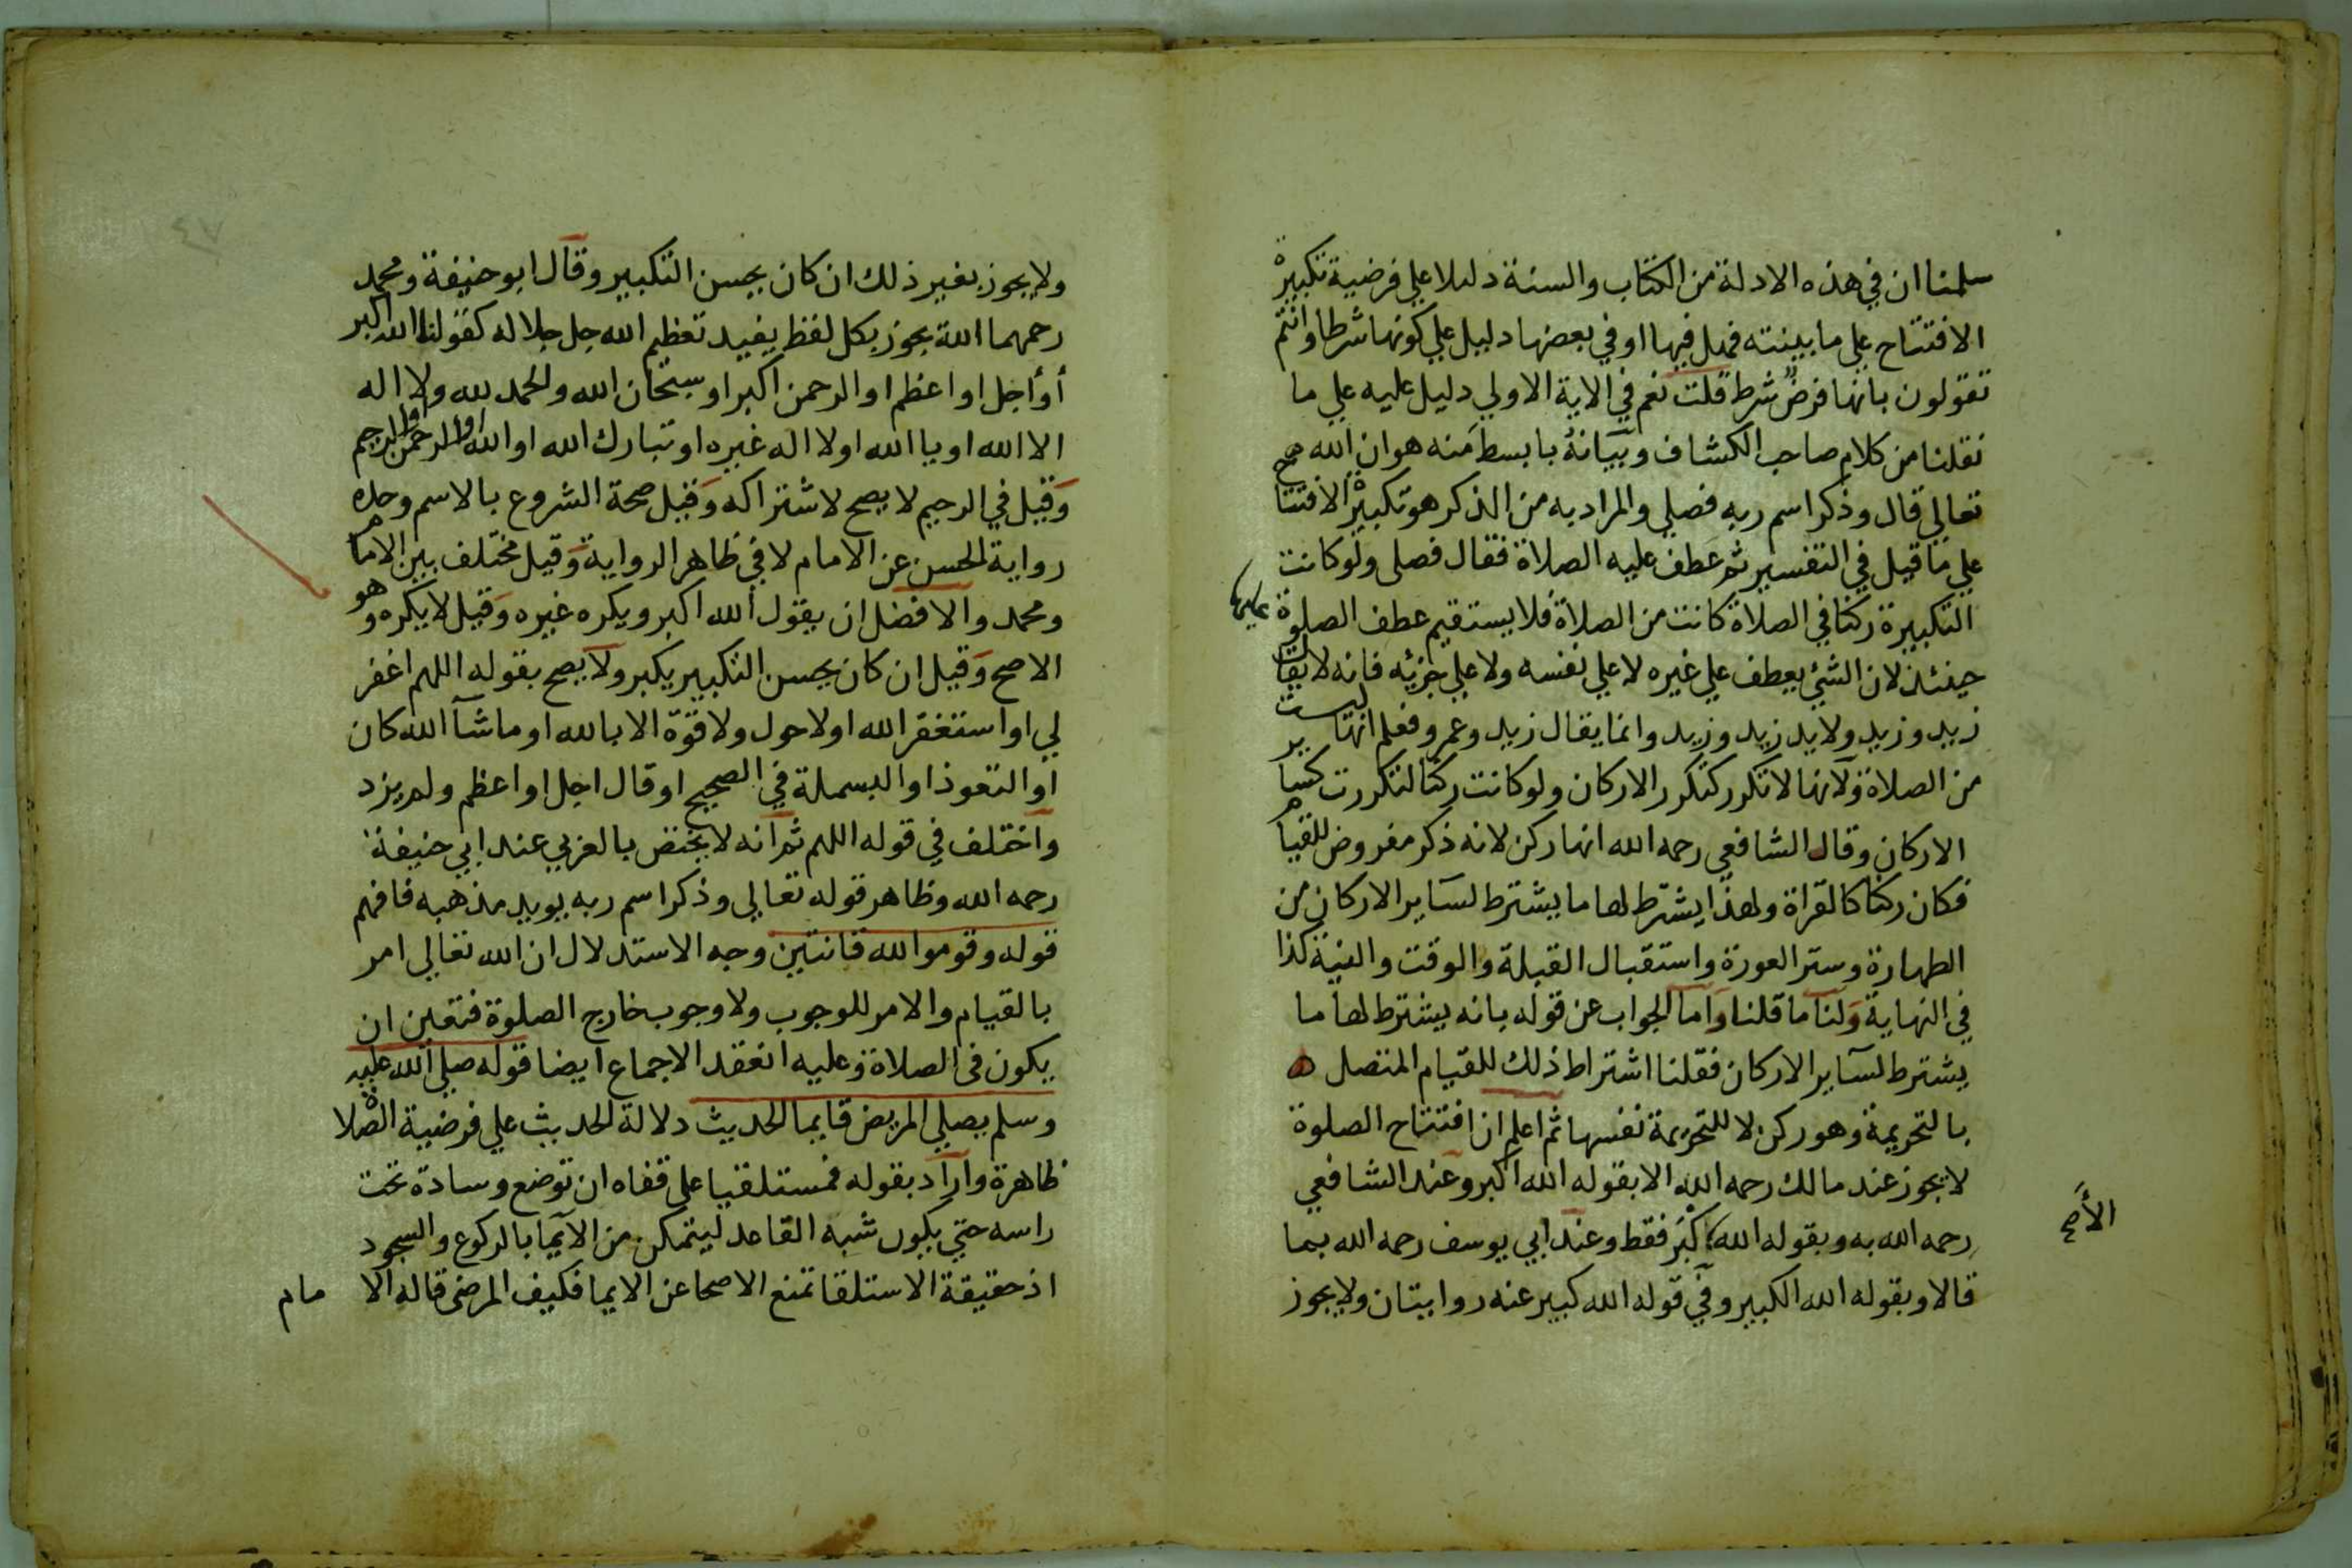 سلمنا ان في هذه الادلة من الكتاب والسنة دليلا علي فرضية تكبيرة
الافتتاح علي ما بينته فهل فيها او في بعضها دليل علي كونها شرطا وانتم
تقولون بانها فرض شرط قلت نعم في الاية الاولي دليل عليه علي ما
نقلنا من كلام صاحب الكشاف وبيانه بابسط منه هو ان الله
تعالي قال وذكر اسم ربه فصلي والمراد به من الذكر هو تكبيرة الافتتاح
علي ما قيل في التفسير ثم عطف عليه الصلاة فقال فصلى ولو كانت
التكبيرة ركنا في الصلاة كانت من الصلاة فلا يستقيم عطف الصلوة عليها
حينئذ لان الشئ يعطف علي غيره لا علي نفسه ولا علي جزئه فانه لا يقال
زيد وزيد ولا يد زيد وزيد وانما يقال زيد وعمرو فعلم انها ليست
من الصلاة ولانها لا تكرر كتكرر الاركان ولو كانت ركنا لتكررت كساير
الاركان وقال الشافعي رحمه الله انها ركن لانه ذكر مفروض للقيام
فكان ركنا كالقراة ولهذا يشترط لها ما يشترط لساير الاركان من
الطهارة وستر العورة واستقبال القبلة والوقت والنية كذا
في النهاية ولنا ما قلنا واما الجواب عن قوله بانه يشترط لها ما
يشترط لساير الاركان فقلنا اشتراط ذلك للقيام المتصل ه
بالتحريمة وهو ركن لا للتحريمة نفسها ثم اعلم ان افتتاح الصلوة
لا يجوز عند مالك رحمه الله الا بقوله الله اكبر وعند الشافعي
رحمه الله به وبقوله الله اكبر فقط وعند ابي يوسف رحمه الله بما
الأصح
قالا وبقوله الله الكبير وفي قوله الله كبير عنه روايتان ولا يجوز
٤٧
ولا يجوز بغير ذلك ان كان يحسن التكبير وقال ابو حنيفة ومحمد
رحمهما الله يجوز بكل لفظ يفيد تعظيم الله جل جلاله كقولنا الله اكبر
أو أجل او اعظم او الرحمن اكبر او سبحان الله والحمد لله ولا اله
الا الله او يا الله اولا اله غيره او تبارك الله او الله او الرحمن او الرحيم
وقيل في الرحيم لا يصح لاشتراكه وقيل صحة الشروع بالاسم وحده
رواية الحسن عن الامام لا في ظاهر الرواية وقيل مختلف بين الامام
ومحمد والافضل ان يقول الله اكبر ويكره غيره وقيل لا يكره وهو
الاصح وقيل ان كان يحسن التكبير يكبر ولا يصح بقوله اللهم اغفر
لي او استغفر الله او لا حول ولا قوة الا بالله او ما شآ الله كان
او التعوذ او البسملة في الصحيح او قال اجل او اعظم ولم يزد
واختلف في قوله اللهم ثم انه لا يختص بالعربي عند ابي حنيفة
رحمه الله وظاهر قوله تعالي وذكر اسم ربه يويد مذهبه فافهم
قوله وقوموا لله قانتين وجه الاستدلال ان الله تعالي امر
بالقيام والامر للوجوب ولا وجوب خارج الصلوة فتعين ان
يكون في الصلاة وعليه انعقد الاجماع ايضا قوله صلي الله عليه
وسلم يصلي المريض قايما الحديث دلالة الحديث علي فرضية الصلاة
ظاهرة واراد بقوله فمستلقيا على قفاه ان توضع وسادة تحت
راسه حتي يكون شبه القاعد ليتمكن من الايما بالركوع والسجود
اذ حقيقة الاستلقا تمنع الاصحا عن الايما فكيف المرضى قاله الا مام